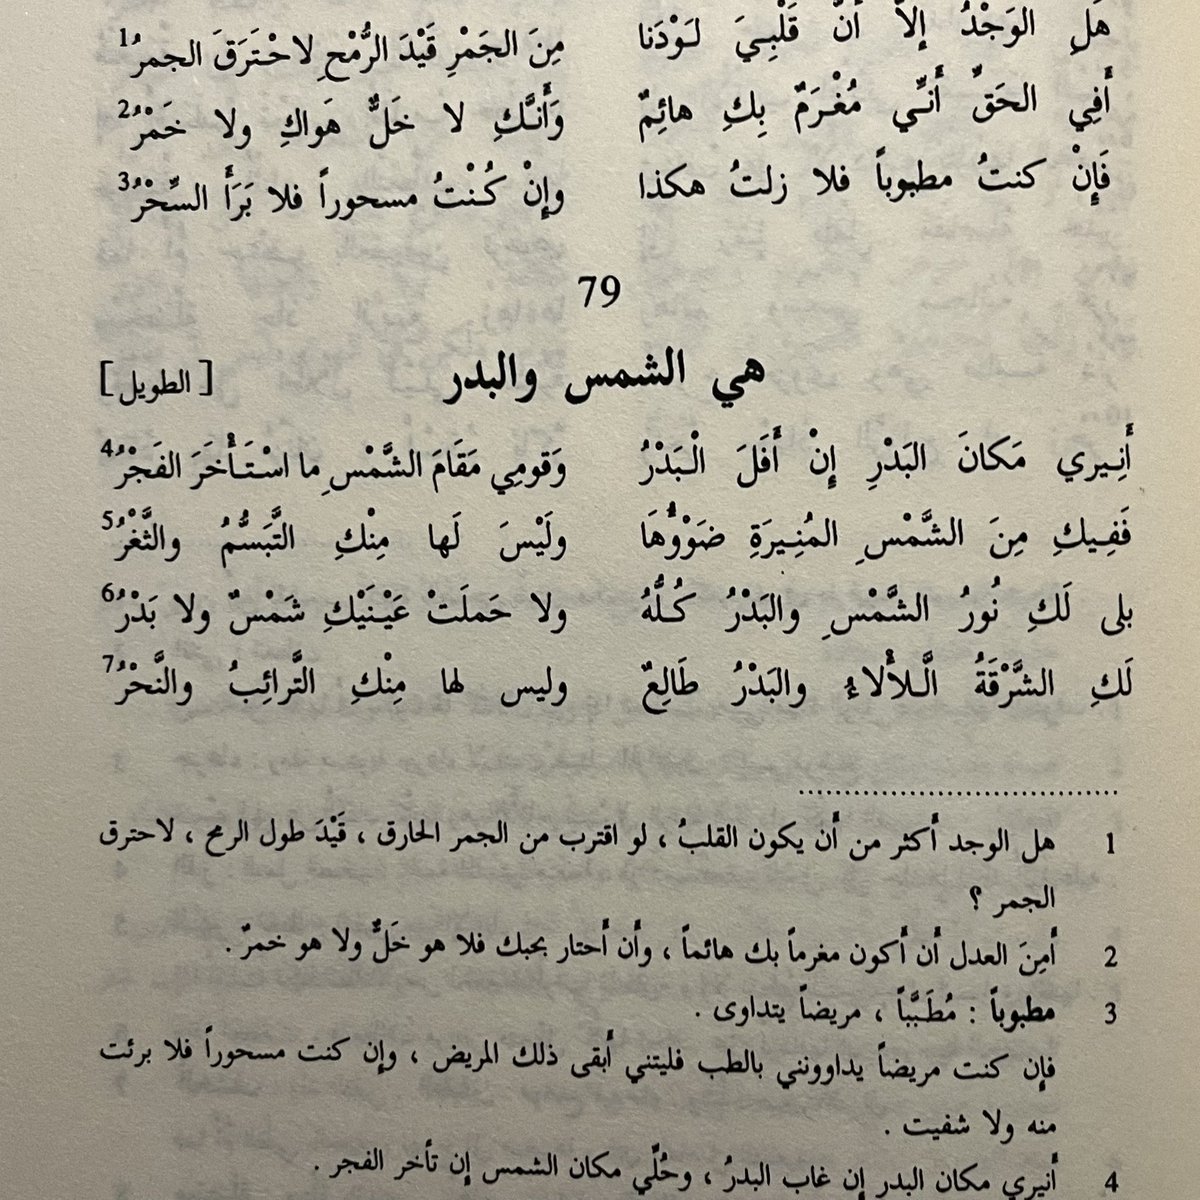 هَلِ الوَجْدُ إِلاَّ أنَّ قَلْبِيَ لَوْدَنا مِنَ الجَمْرِ قَيْدَ الرُّمْحِ لاحْتَرَقَ الجمرُ1
أَفِي الحَقِّ أَنِّي مُغْرَمٌ بِكِ هائِمٌ وَأَنَّكِ لا خَلٌّ هَواكِ ولا خَمْرُ2
فَإِنْ كنتُ مطبوباً فلا زلتُ هكذا وإِنْ كُنْتُ مسحوراً فلا بَرَأَ السِّحْرُ3
79
هي الشمس والبدر [الطويل]
أَنِيري مَكانَ البَدْرِ إِنْ أَفَلَ الْبَدْرُ وَقومِي مَقَامَ الشَّمْسِ ما اسْتَأْخَرَ الفَجْرُ4
فَفِيكِ مِنَ الشَّمْسِ المُنِيرَةِ ضَوْؤُهَا وَلَيْسَ لَها مِنْكِ التَّبَسُّمُ والثَّغْرُ5
بلى لَكِ نُورُ الشَّمْسِ والبَدْرُ كُلُّهُ ولا حَملَتْ عَيْنَيْكِ شَمْسٌ ولا بَدْرُ6
لَكِ الشَّرْقَةُ الَّلأْلاءُ والبَدْرُ طَالِعٌ وليس لها مِنْكِ التَّرائِبُ والنَّحْرُ7
1 هل الوجد أَكثر من أَن يكون القلبُ ، لو اقترب من الجمر الحارق ، قَيْدَ طول الرمح ، لاحترق
الجمر ؟
2 أَمِنَ العدل أَن أَكون مغرماً بك هائماً ، وأَن أَحتار بحبك فلا هو خَلٌّ ولا هو خمرٌ .
3 مطبوباً : مُطَبَّباً ، مريضاً يتداوى .
فإِن كنت مريضاً يداوونني بالطب فليتني أَبقى ذلك المريض ، وإِن كنت مسحوراً فلا برئت
منه ولا شفيت .
4 أَنيري مكان البدر إِن غاب البدرُ ، وحُلِّي مكان الشمس إِن تأخر الفجر .